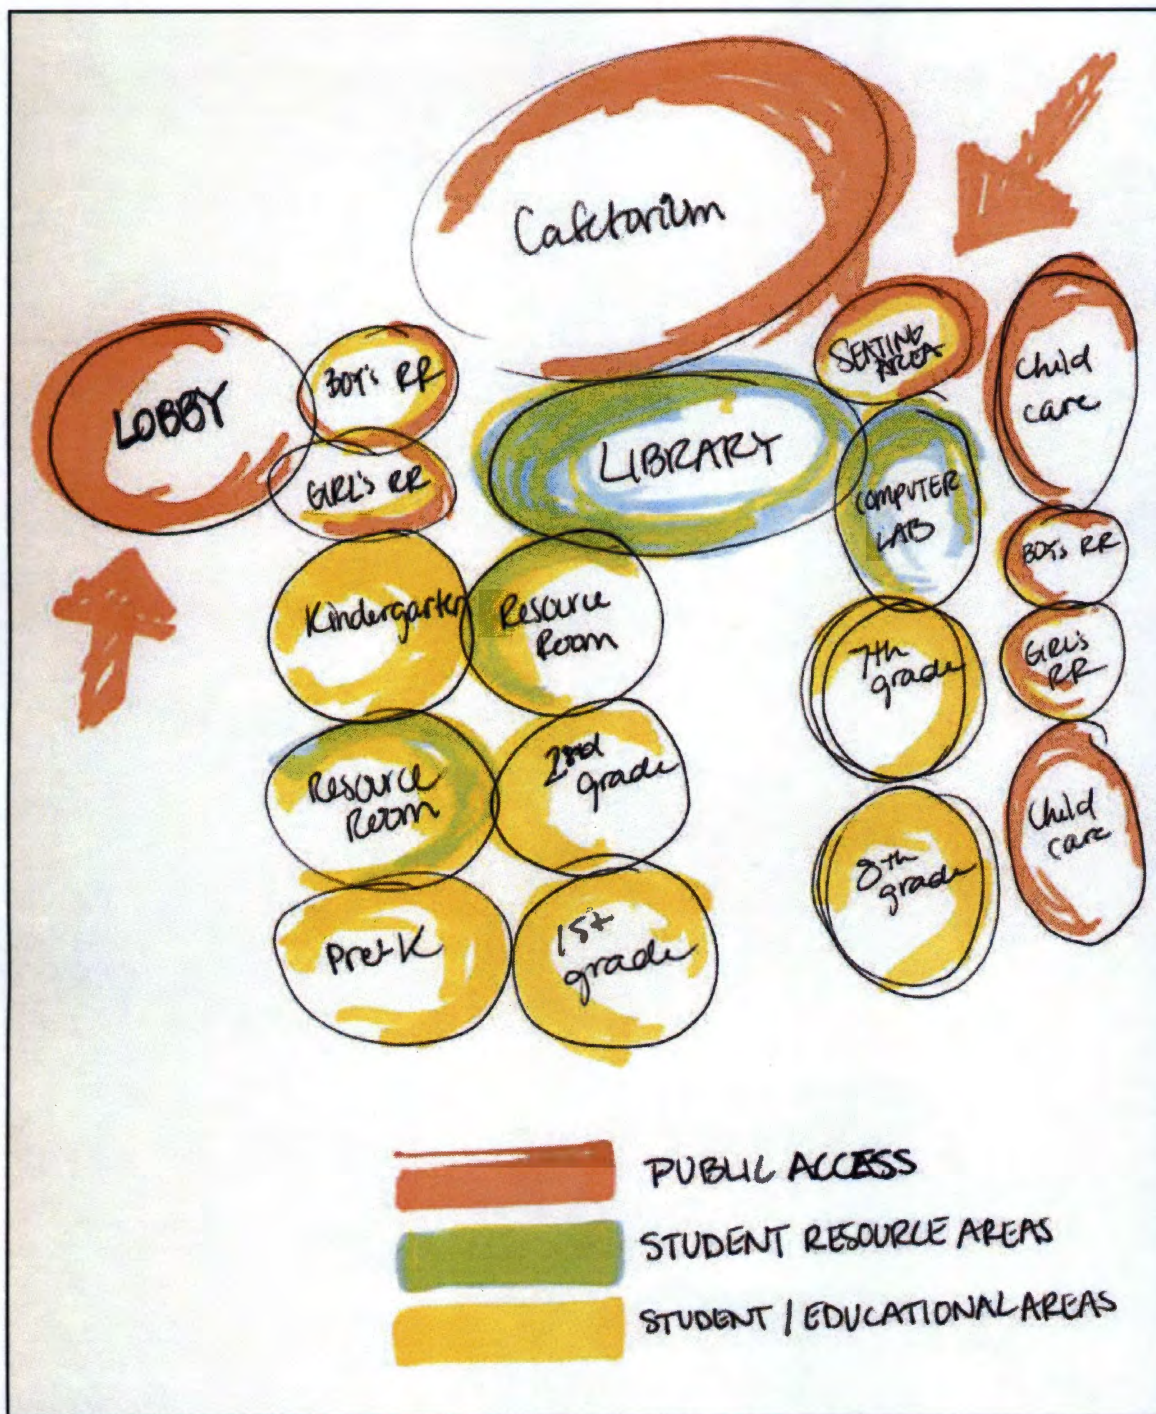 Cafetorium
LOBBY
BOY'S RR
GIRL'S RR
SEATING
AREA
Child
care
LIBRARY
COMPUTER
LAB
BOY'S RR
GIRL'S
RR
Kindergarten
Resource
Room
7th
grade
Resource
Room
grade
Child
care
8th
grade
Pre-K
1st
grade
PUBLIC ACCESS
STUDENT RESOURCE AREAS
STUDENT / EDUCATIONAL AREAS